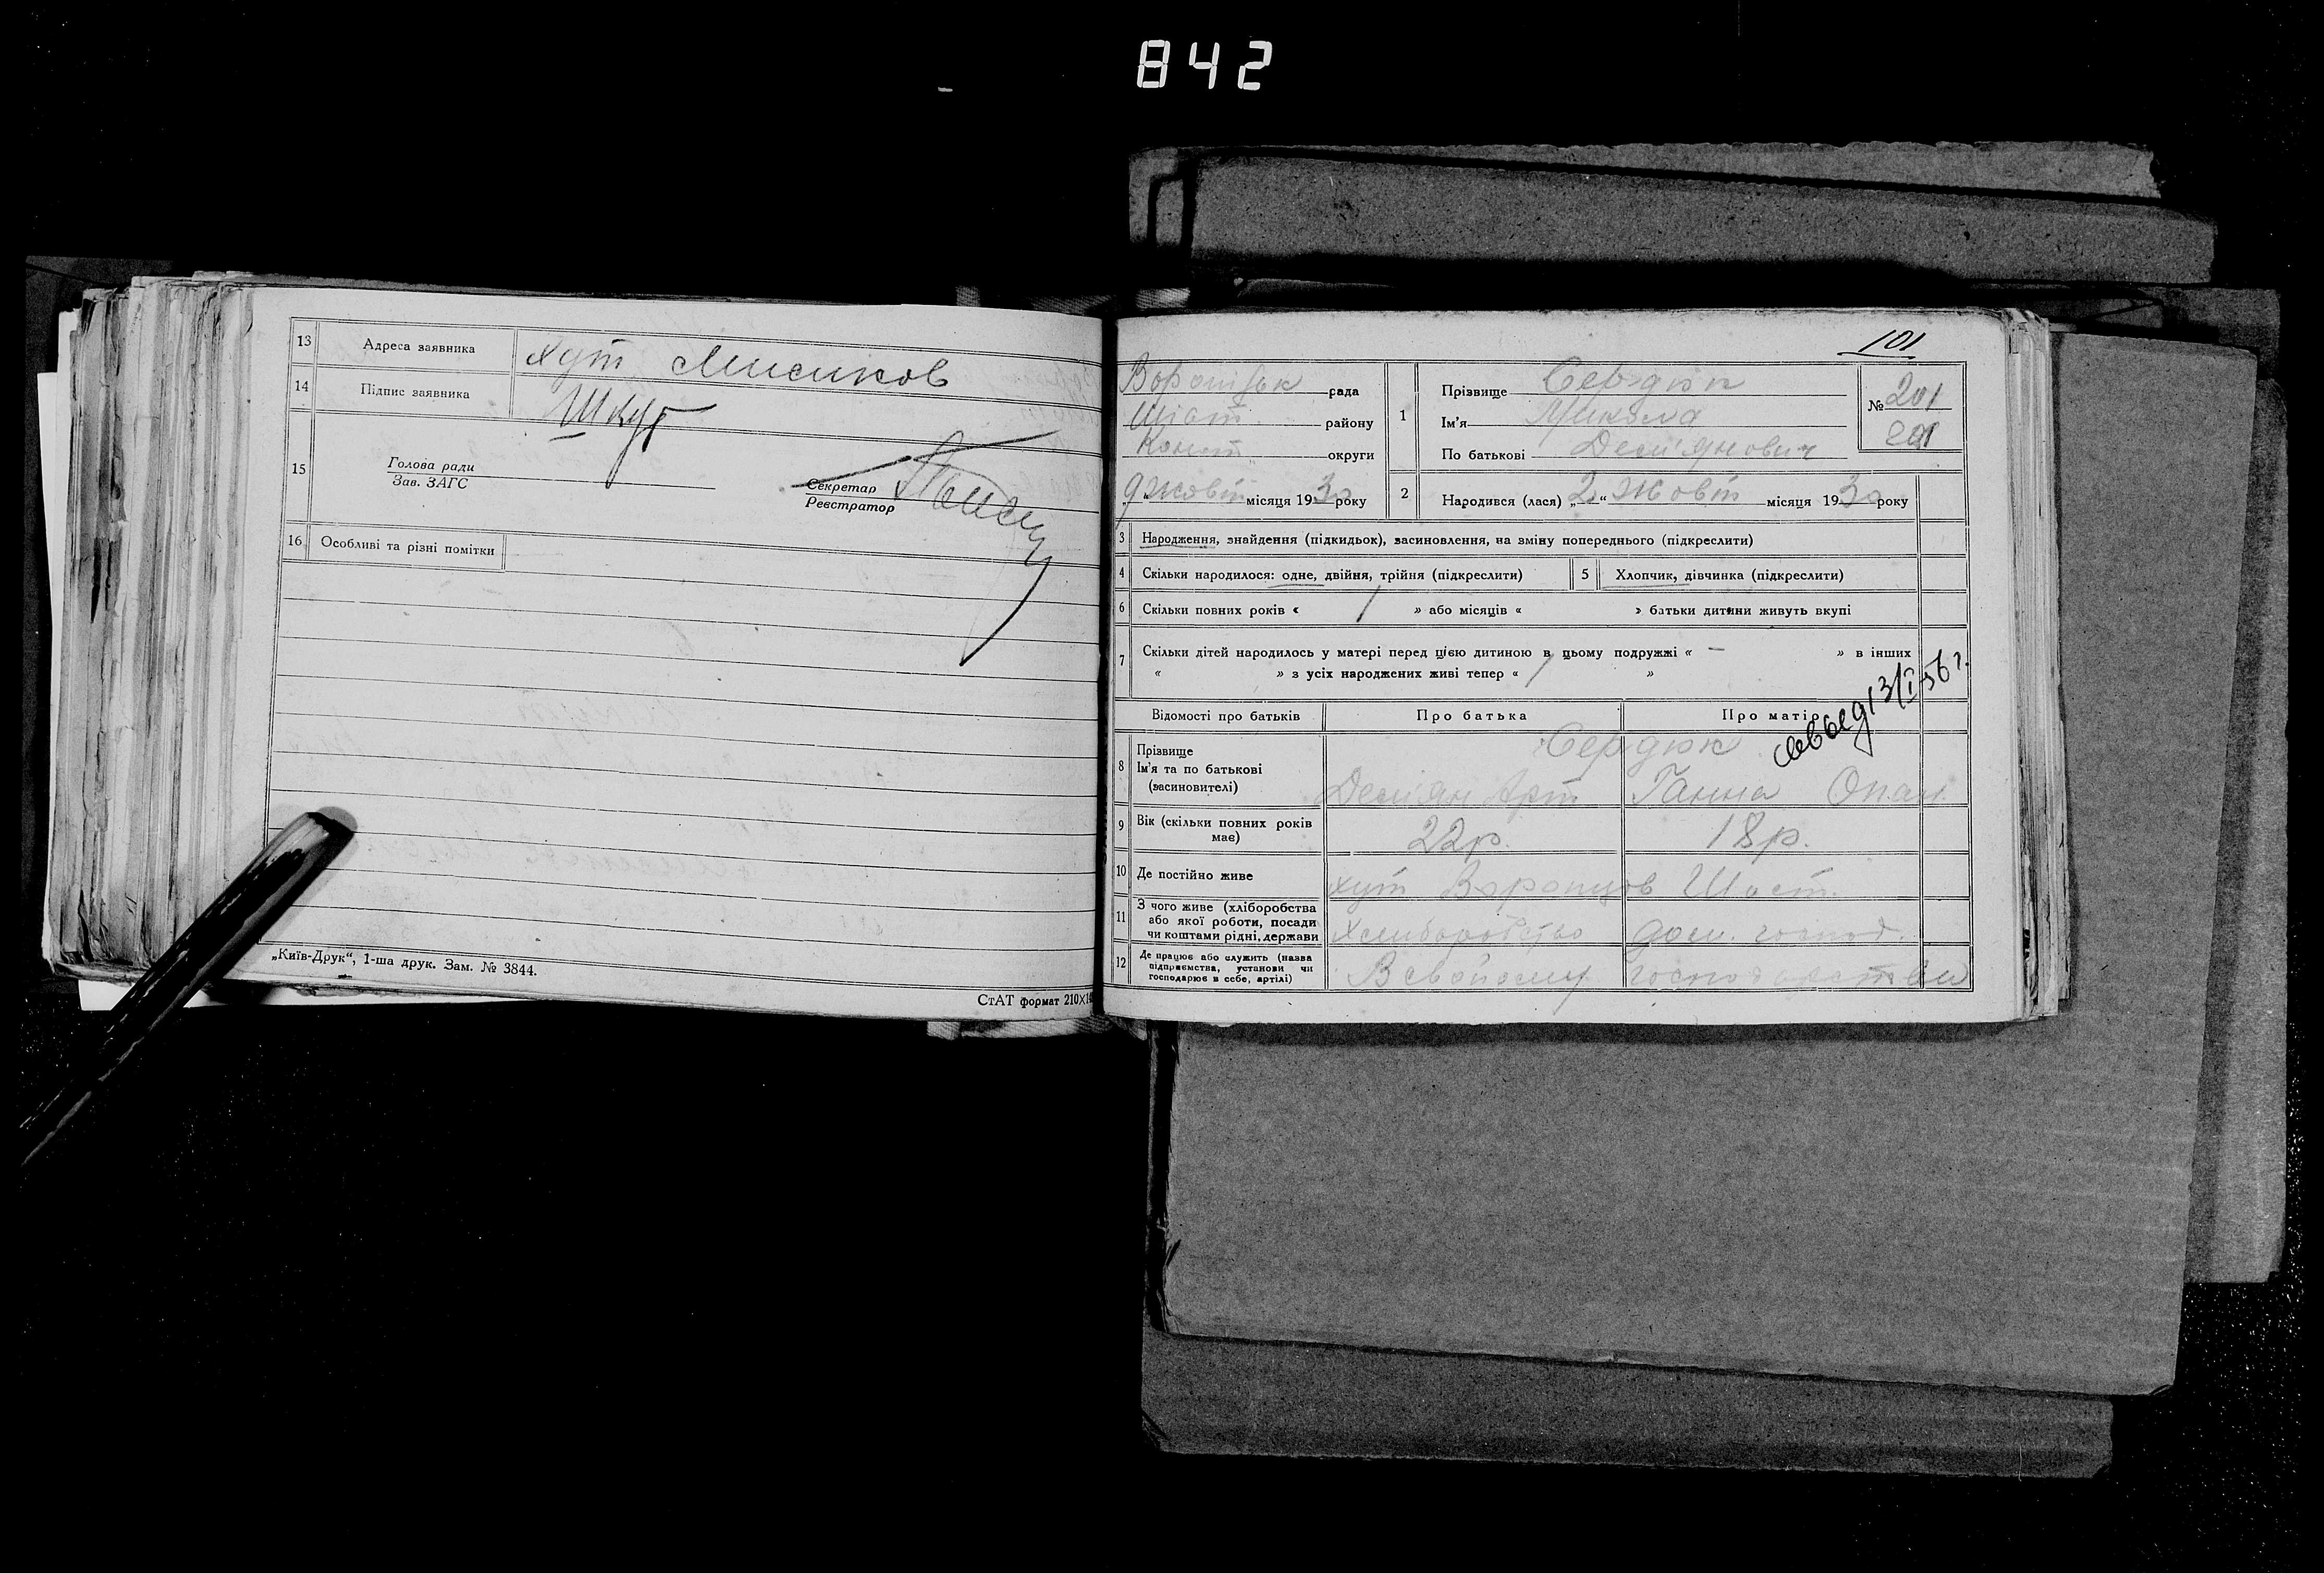 842
13 Адреса заявника хут Мисиков
14 Підпис заявника Шкур
15 Голова ради
Зав. ЗАГС
Секретар
Реєстратор
16 Особливі та різні помітки
„Київ-Друк“, 1-ша друк. Зам. № 3844.
СтАТ формат 210×14
101
рада
Шаст. району
Конот округи
9 жовт місяця 1930 року
1 Прізвище Сердюк
Ім'я Микола
По батькові Дем'янович
№ 201
201
2 Народився (лася) „2“ жовт місяця 1930 року
3 Народження, знайдення (підкидьок), засиновлення, на зміну попереднього (підкреслити)
4 Скільки народилося: одне, двійня, трійня (підкреслити) 5 Хлопчик, дівчинка (підкреслити)
6 Скільки повних років « 1 » або місяців « » батьки дитини живуть вкупі
7 Скільки дітей народилось у матері перед цією дитиною в цьому подружжі « – » в інших
« » з усіх народжених живі тепер « »
Відомості про батьків Про батька Про матір
свыд 13/I-56 г.
8 Прізвище
Ім'я та по батькові
(засиновителі)
Сердюк
Дем'ян Арт Ганна Опан
9 Вік (скільки повних років
має)
22р. 18р.
10 Де постійно живе хут Воронцов Шаст.
11 З чого живе (хліборобства
або якої роботи, посади
чи коштами рідні, держави
Хлиборобство дом. господ.
12 Де працює або служить (назва
підприємства, установи чи
господарює в себе, артілі)
В свойому господарстви